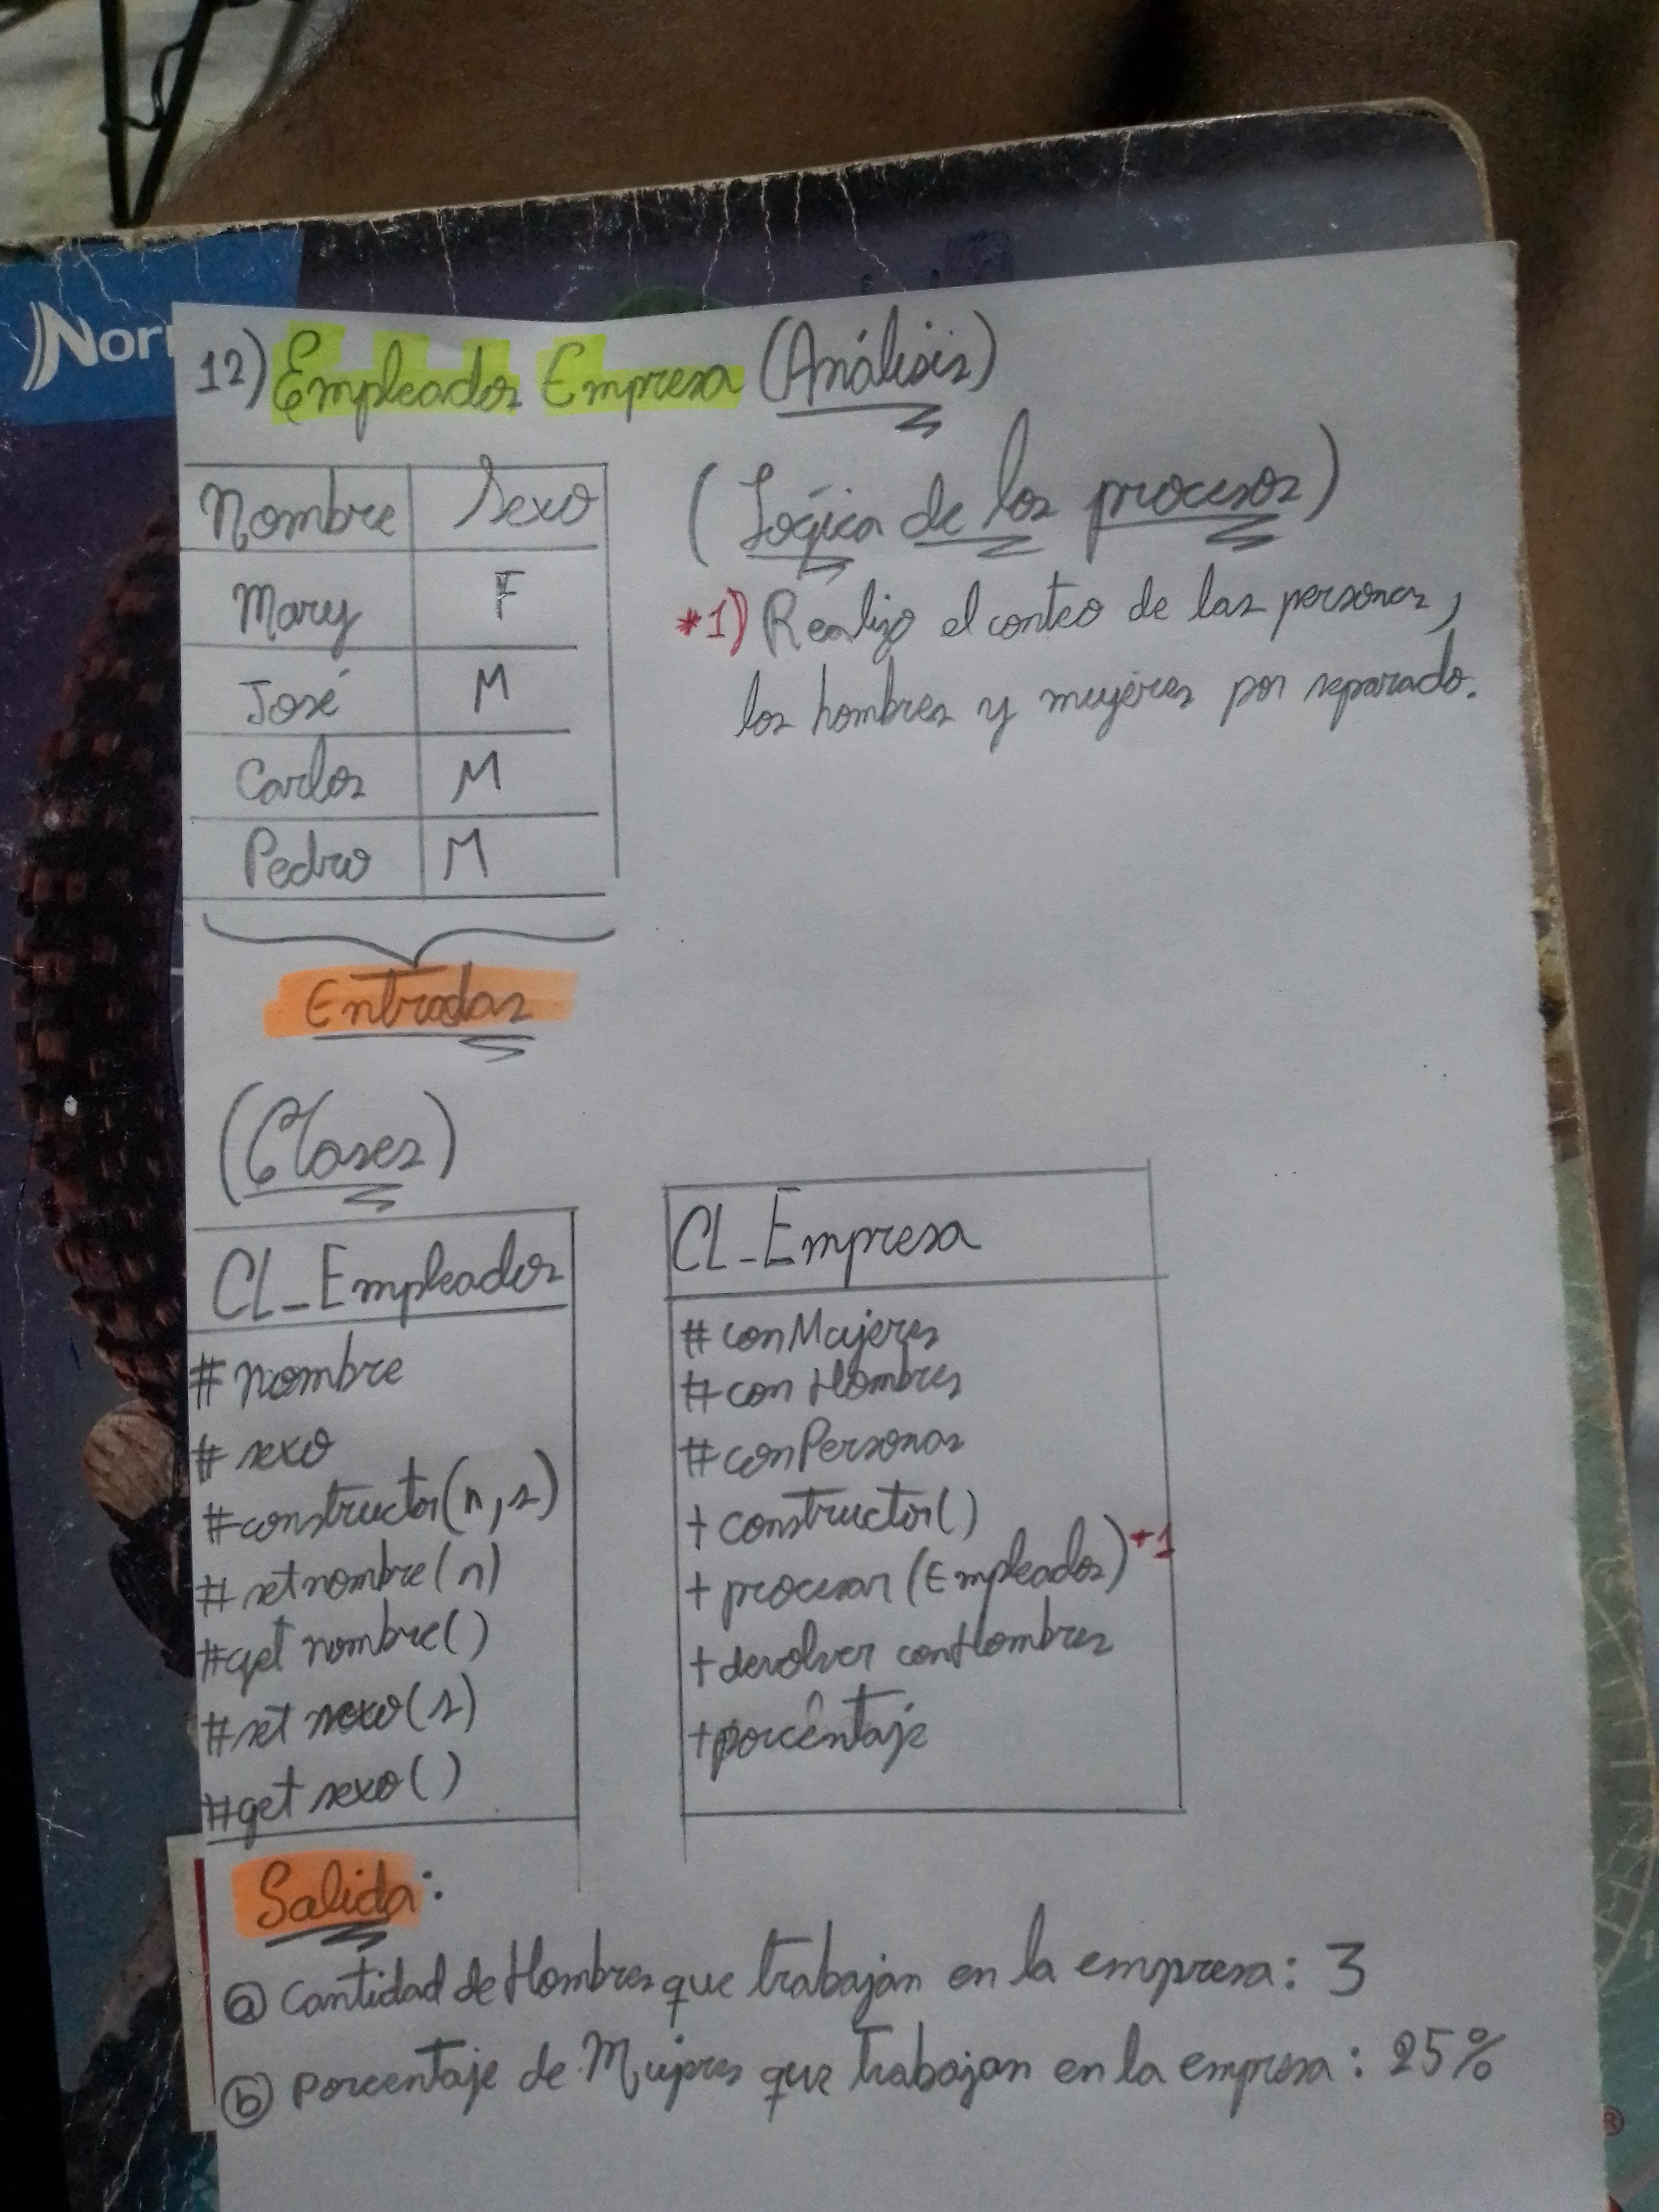 Nor
12) Empleados Empresa (Análisis)
Nombre Sexo
Mary F
José M
Carlos M
Pedro M
Entradas
(Lógica de los procesos)
*1) Realizo el conteo de las personas,
los hombres y mujeres por separado.
(Clases)
CL_Empleados
# nombre
# sexo
#constructor(n,s)
# setnombre(n)
#get nombre()
#set sexo(s)
#get sexo()
CL_Empresa
# conMujeres
# conHombres
# conPersonas
+ constructor()
+ procesar (Empleados) *1
+ devolver conHombres
+ porcentaje
Salida:
a Cantidad de Hombres que trabajan en la empresa: 3
b Porcentaje de Mujeres que trabajan en la empresa: 25%
®